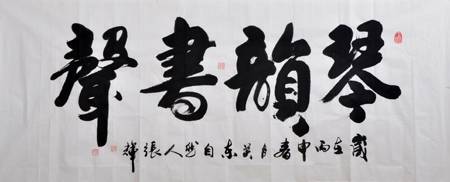 琴韻書聲
歲在丙申春月关东自然人張輝